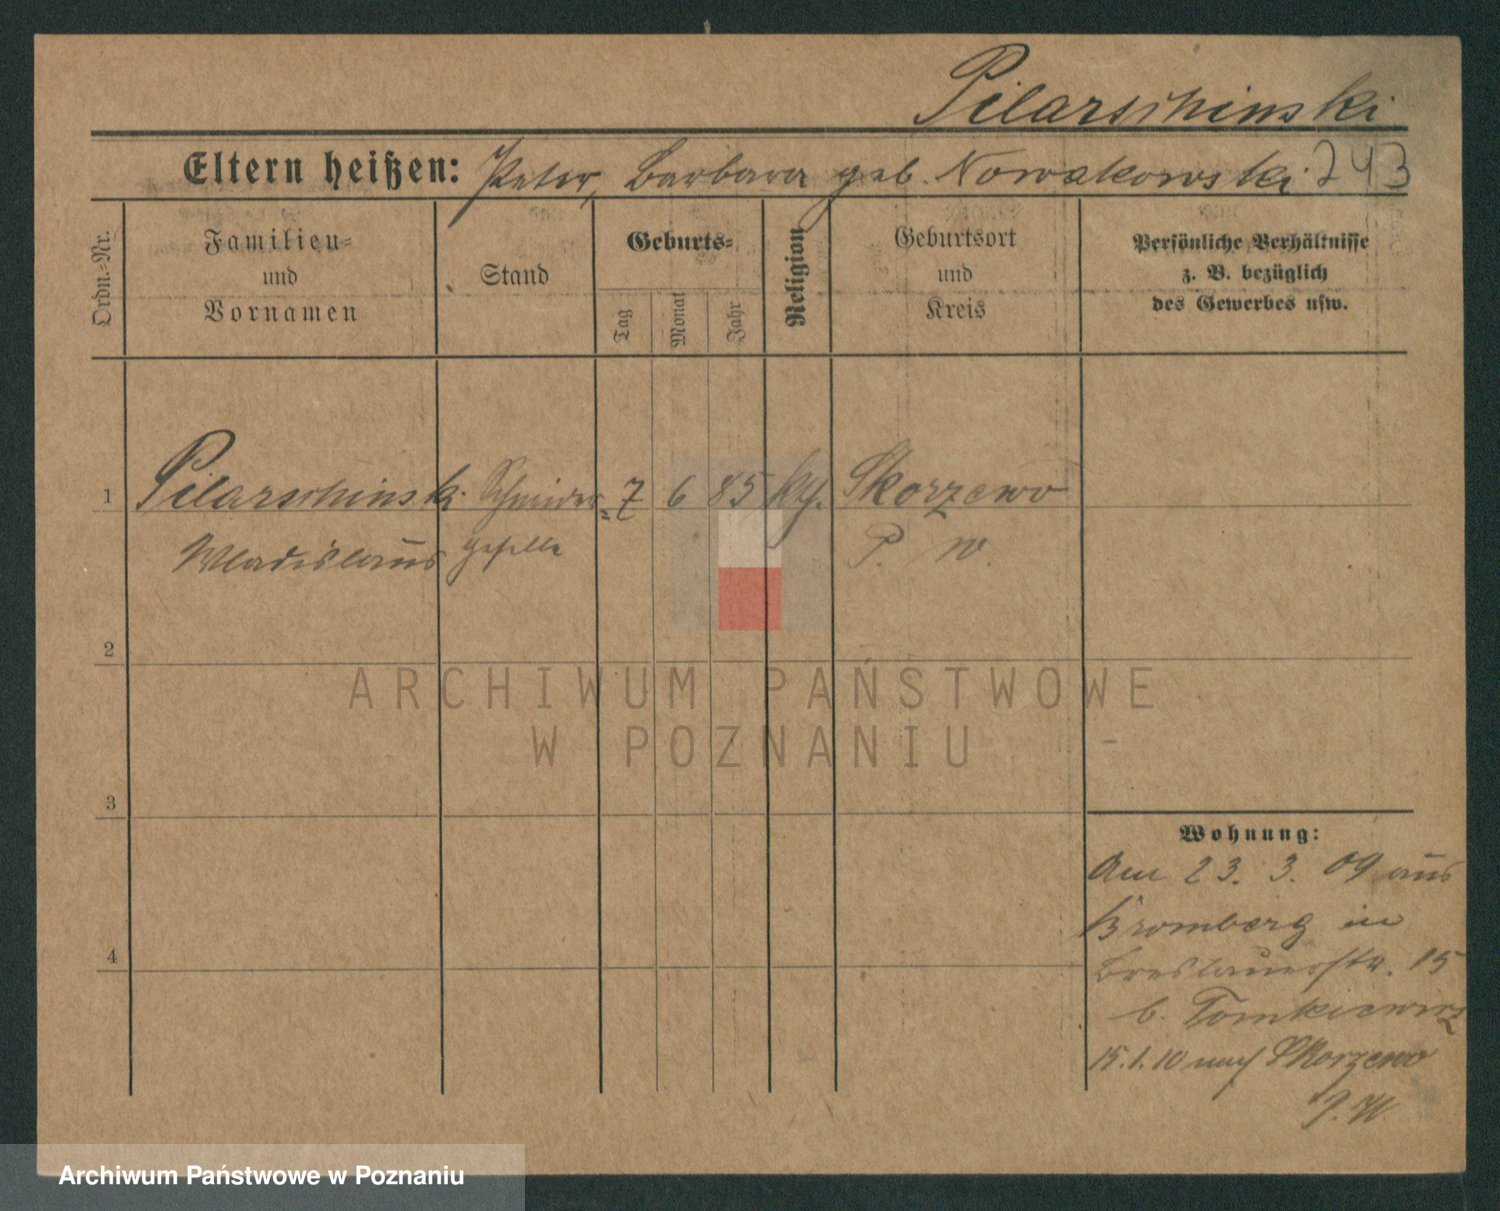 Pilarschinski
Eltern heißen: Peter, Barbara geb. Nowakowski 243
Ordn.-Nr.
Familien-
und
Vornamen
Stand
Geburts-
Tag
Monat
Jahr
Religion
Geburtsort
und
Kreis
Persönliche Verhältnisse
z. B. bezüglich
des Gewerbes usw.
1 Pilarschinski Schneider= 7 6 85 kth. Skorzewo
Wladislaus geselle P. W.
2
3
4
Wohnung:
Am 23. 3. 09 aus
Bromberg in
Breslauerstr. 15
b. Tomkiewicz
15.1.10 nach Skorzewo
P. W
ARCHIWUM PAŃSTWOWE
W POZNANIU
Archiwum Państwowe w Poznaniu